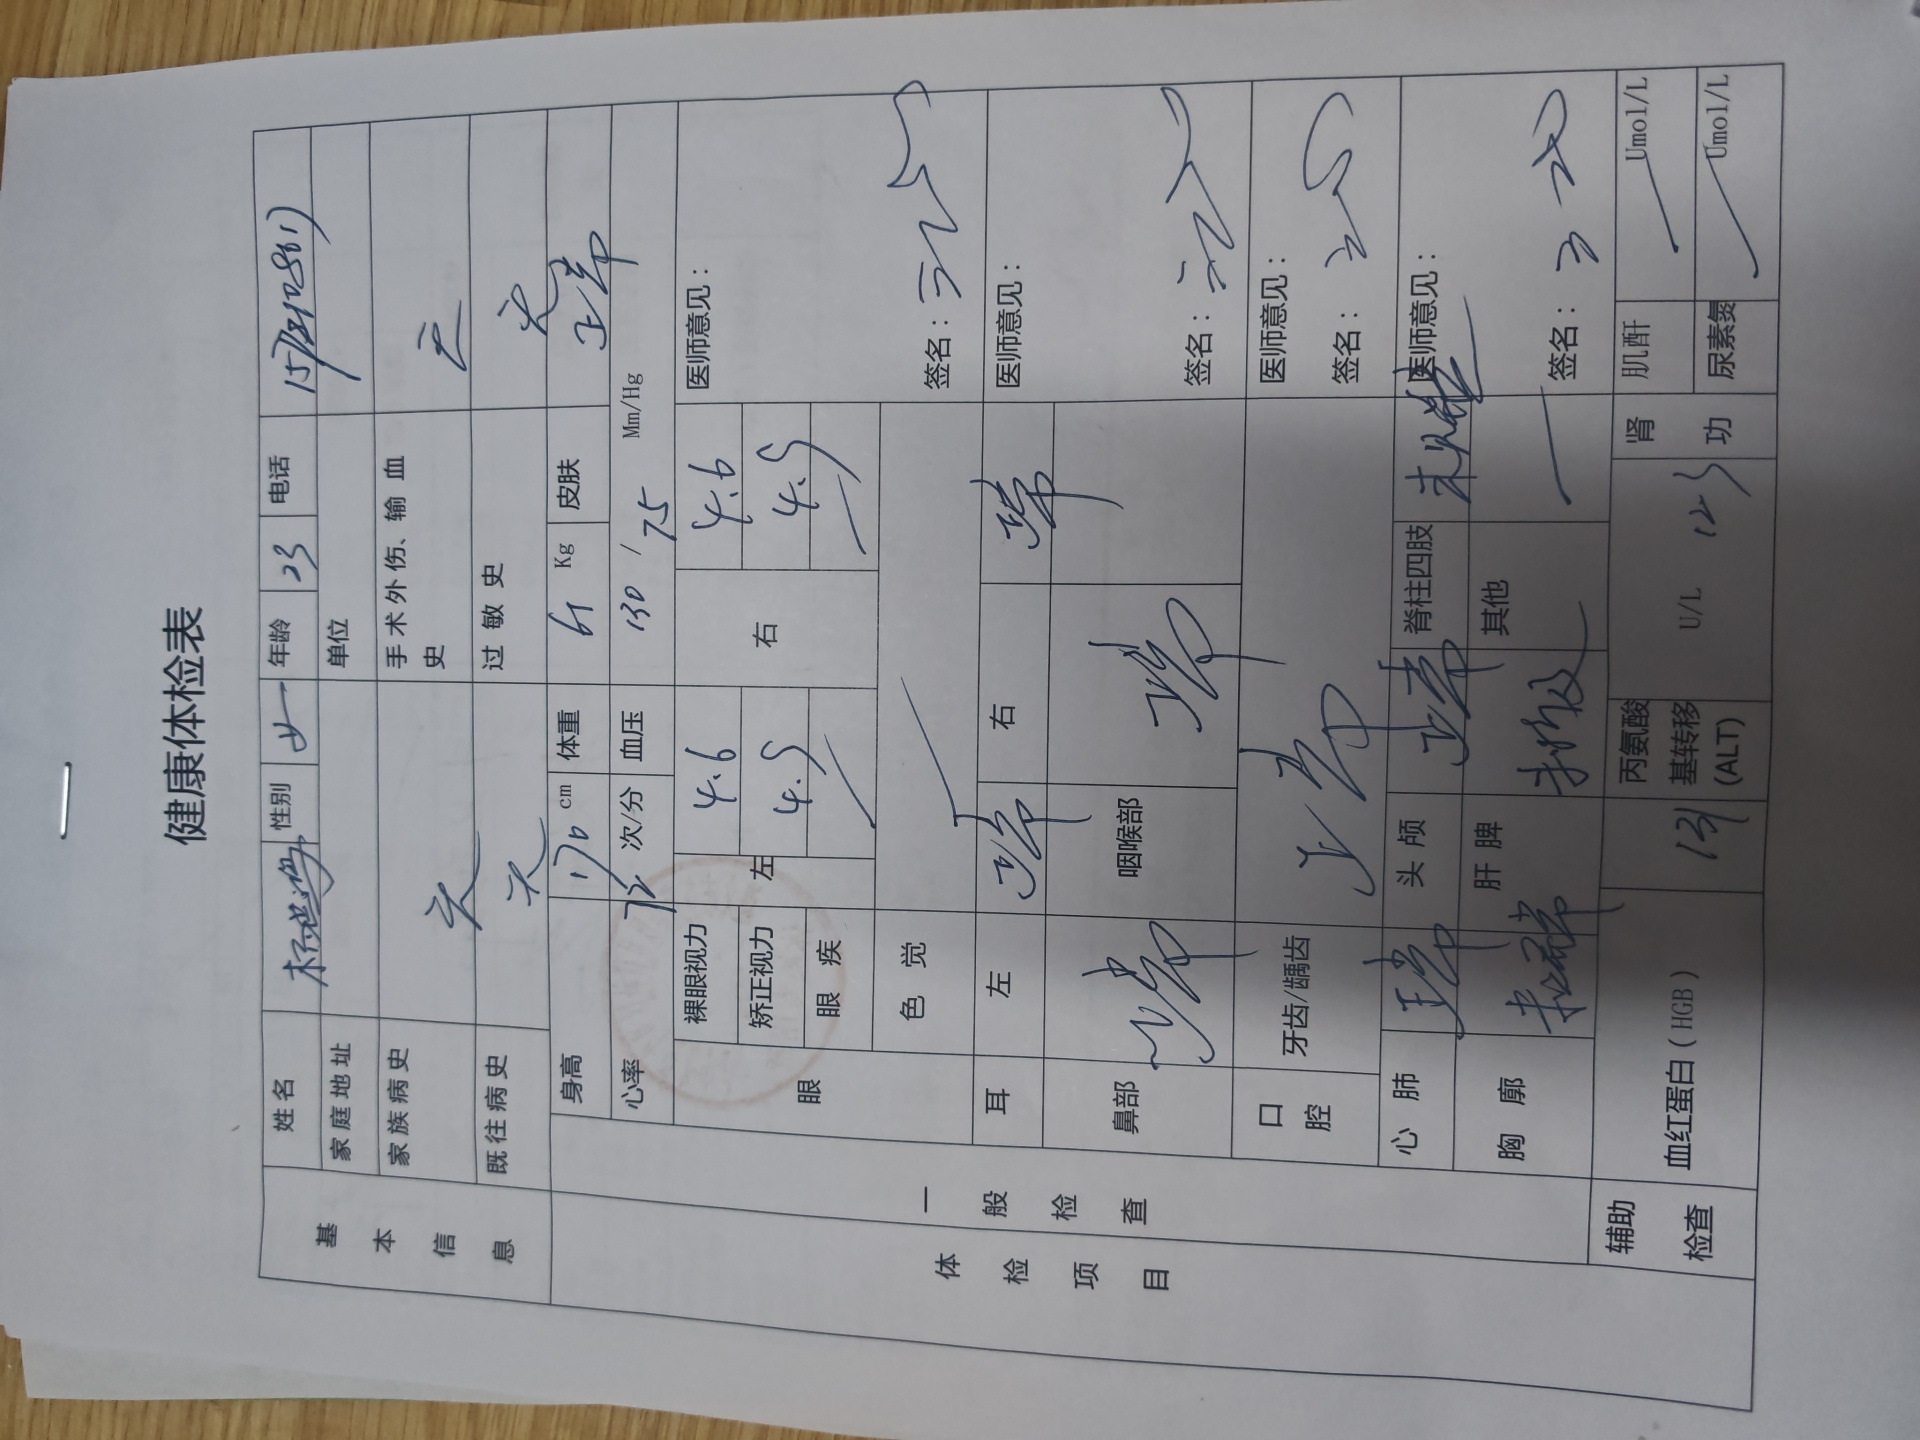 健康体检表
基本信息 姓名 性别 女 年龄 23 电话
家庭地址 单位
家族病史 无 手术外伤、输血史 无
既往病史 无 过敏史 无
体检项目 一般检查 身高 170 cm 体重 61 Kg 皮肤 正常
心率 72 次/分 血压 130/75 Mm/Hg
眼 裸眼视力 左 4.6 右 4.6 医师意见：
矫正视力 4.9 4.9
眼疾
色觉 签名：
耳 左 正常 右 正常 医师意见：
鼻部 正常 咽喉部 正常 签名：
口腔 牙齿/龋齿 正常 医师意见：
签名：
心肺 正常 头颅 正常 脊柱四肢 医师意见：
胸廓 肝脾 其他 签名：
辅助检查 血红蛋白(HGB) 131 丙氨酸基转移(ALT) U/L 肾功 肌酐 Umol/L
尿素氮 Umol/L